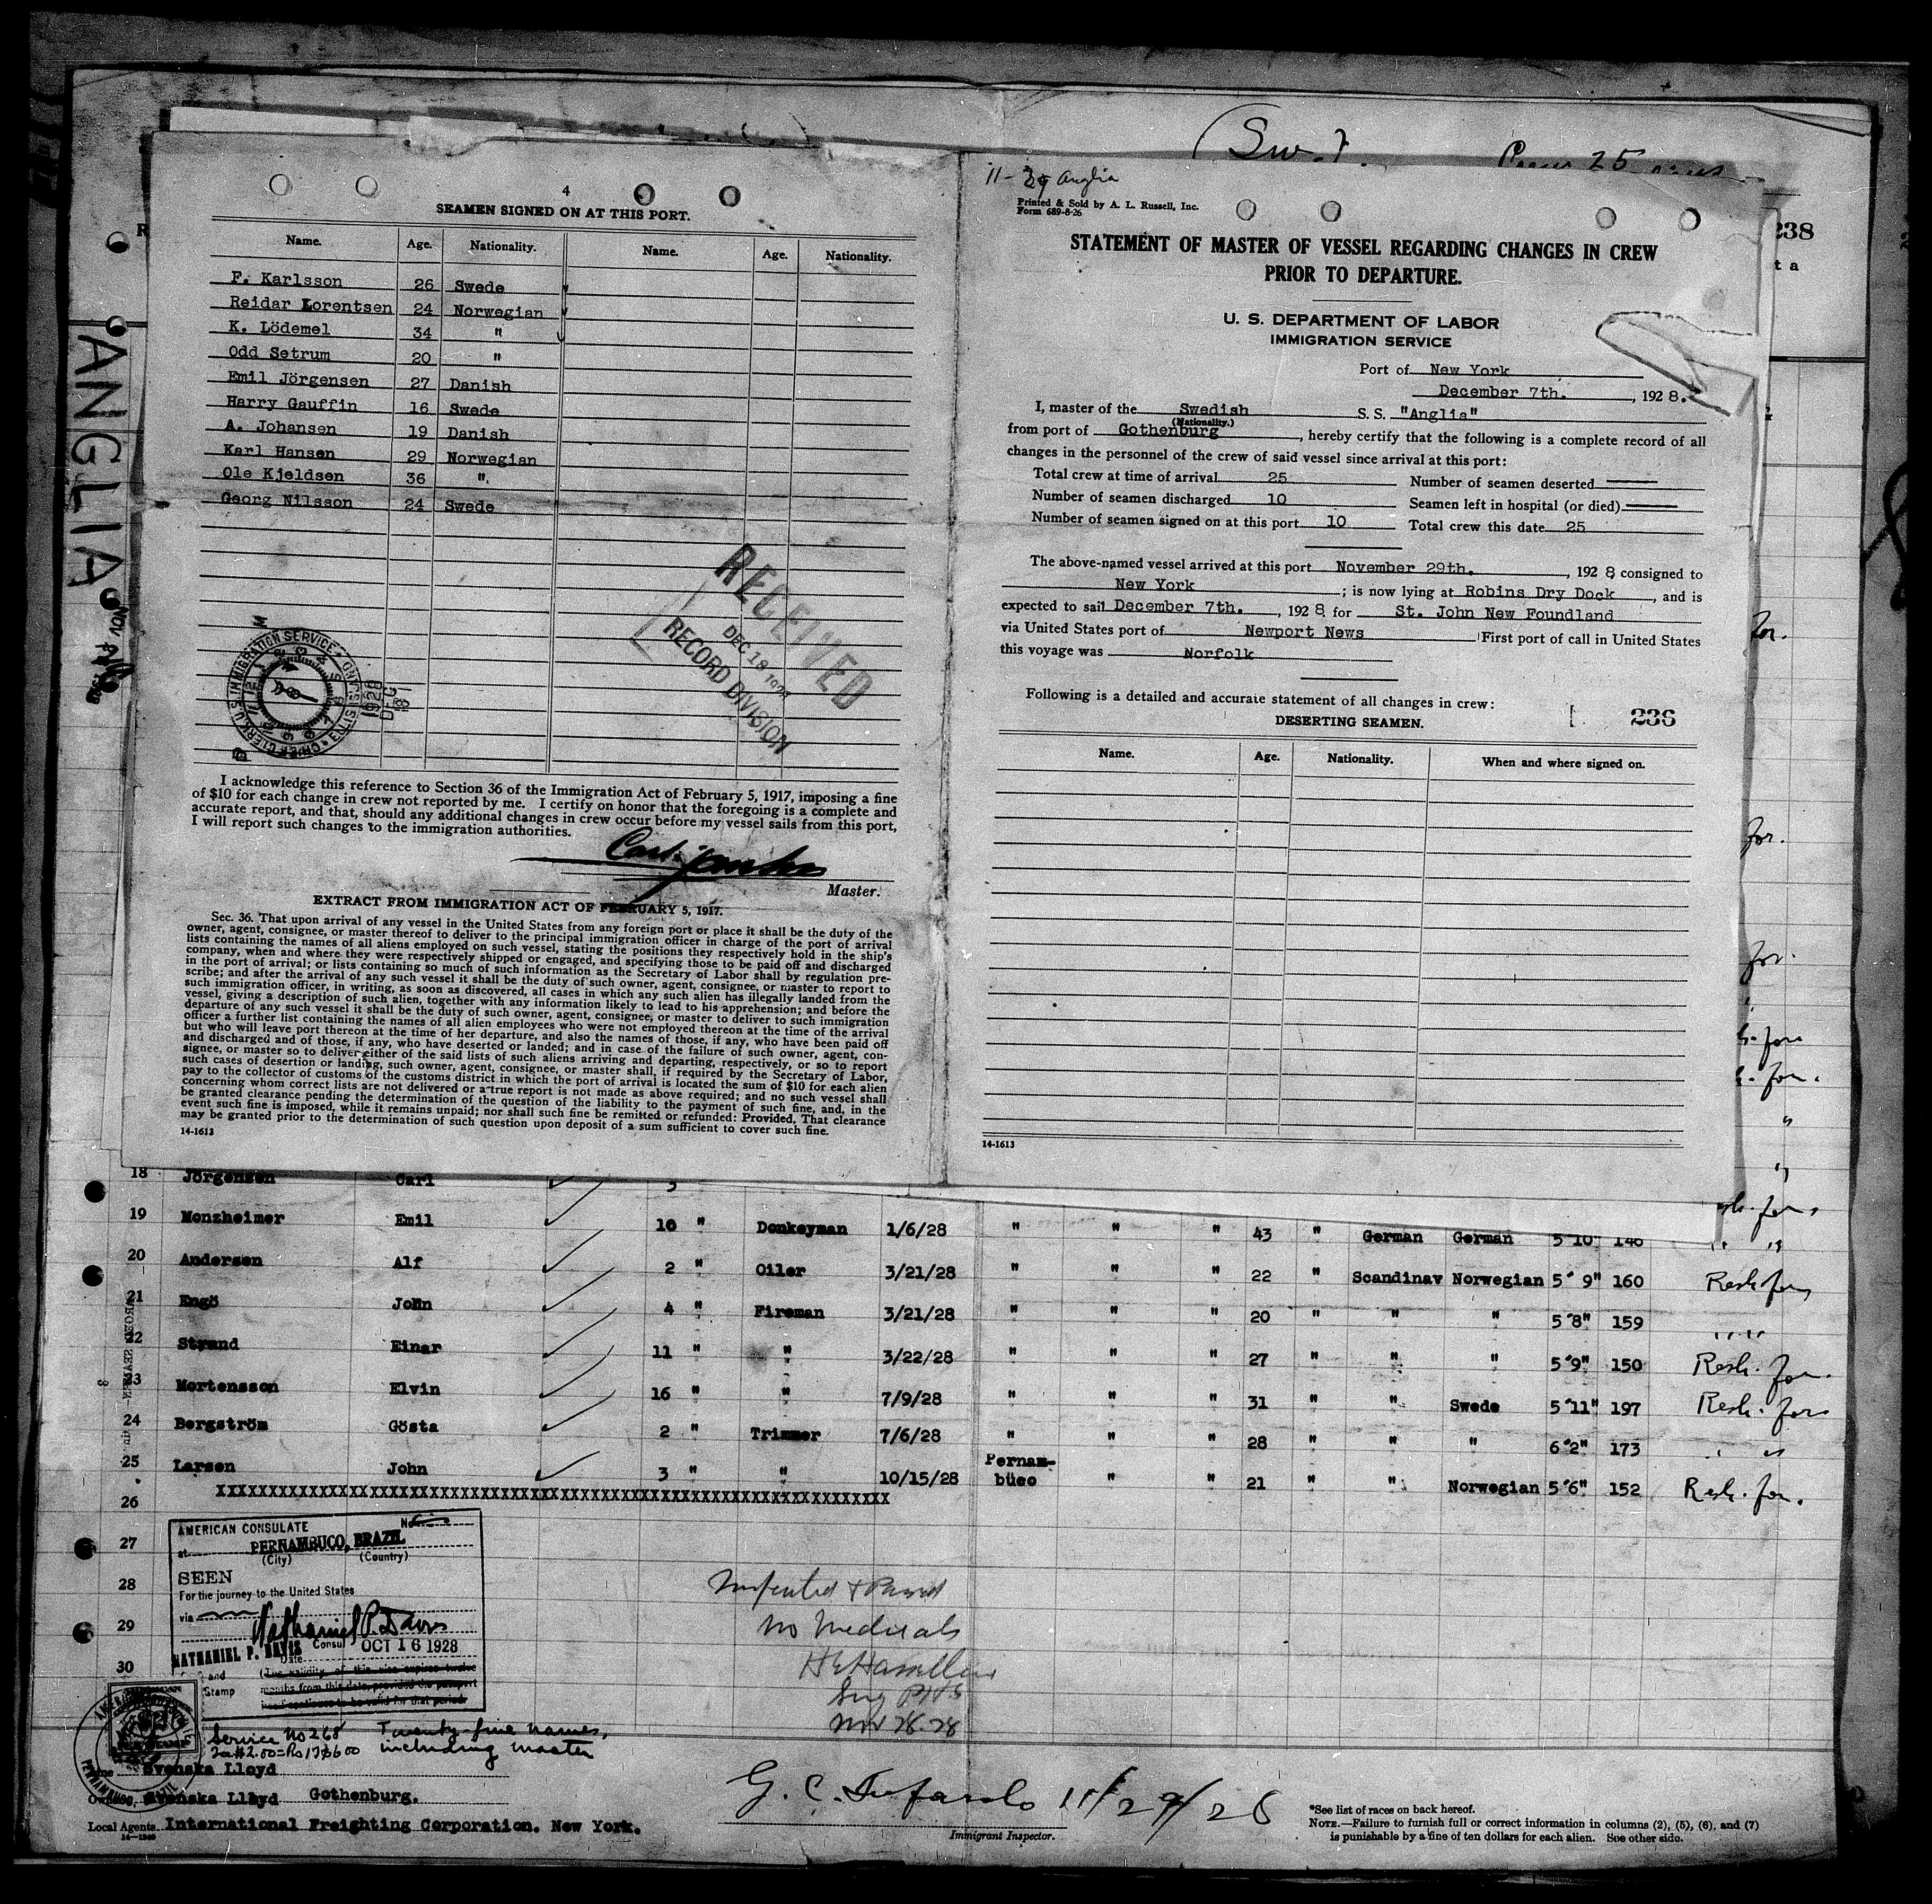 (Sw.
238
ANGLIA
4
SEAMEN SIGNED ON AT THIS PORT.
Name. Age. Nationality. Name. Age. Nationality.
F. Karlsson 26 Swede
Reidar Lorentsen 24 Norwegian
K. Lödemel 34 "
Odd Setrum 20 "
Emil Jörgensen 27 Danish
Harry Gauffin 16 Swede
A. Johansen 19 Danish
Karl Hansen 29 Norwegian
Ole Kjeldsen 36 ".
Georg Nilsson 24 Swede
RECEIVED
DEC 18 1928
RECORD DIVISION
I acknowledge this reference to Section 36 of the Immigration Act of February 5, 1917, imposing a fine
of $10 for each change in crew not reported by me. I certify on honor that the foregoing is a complete and
accurate report, and that, should any additional changes in crew occur before my vessel sails from this port,
I will report such changes to the immigration authorities.
Carl
Master.
EXTRACT FROM IMMIGRATION ACT OF FEBRUARY 5, 1917.
Sec. 36. That upon arrival of any vessel in the United States from any foreign port or place it shall be the duty of the
owner, agent, consignee, or master thereof to deliver to the principal immigration officer in charge of the port of arrival
lists containing the names of all aliens employed on such vessel, stating the positions they respectively hold in the ship's
company, when and where they were respectively shipped or engaged, and specifying those to be paid off and discharged
in the port of arrival; or lists containing so much of such information as the Secretary of Labor shall by regulation pre-
scribe; and after the arrival of any such vessel it shall be the duty of such owner, agent, consignee, or master to report to
such immigration officer, in writing, as soon as discovered, all cases in which any such alien has illegally landed from the
vessel, giving a description of such alien, together with any information likely to lead to his apprehension; and before the
departure of any such vessel it shall be the duty of such owner, agent, consignee, or master to deliver to such immigration
officer a further list containing the names of all alien employees who were not employed thereon at the time of the arrival
but who will leave port thereon at the time of her departure, and also the names of those, if any, who have been paid off
and discharged and of those, if any, who have deserted or landed; and in case of the failure of such owner, agent, con-
signee, or master so to deliver either of the said lists of such aliens arriving and departing, respectively, or so to report
such cases of desertion or landing, such owner, agent, consignee, or master shall, if required by the Secretary of Labor,
pay to the collector of customs of the customs district in which the port of arrival is located the sum of $10 for each alien
concerning whom correct lists are not delivered or a true report is not made as above required; and no such vessel shall
be granted clearance pending the determination of the question of the liability to the payment of such fine, and, in the
event such fine is imposed, while it remains unpaid; nor shall such fine be remitted or refunded: Provided, That clearance
may be granted prior to the determination of such question upon deposit of a sum sufficient to cover such fine.
14-1613
11-29 Anglia
Printed & Sold by A. L. Russell, Inc.
Form 689-8-26
STATEMENT OF MASTER OF VESSEL REGARDING CHANGES IN CREW
PRIOR TO DEPARTURE.
U. S. DEPARTMENT OF LABOR
IMMIGRATION SERVICE
Port of New York
December 7th. , 1928.
I, master of the Swedish S. S. "Anglia"
(Nationality.)
from port of Gothenburg , hereby certify that the following is a complete record of all
changes in the personnel of the crew of said vessel since arrival at this port:
Total crew at time of arrival 25 Number of seamen deserted
Number of seamen discharged 10 Seamen left in hospital (or died)
Number of seamen signed on at this port 10 Total crew this date 25
The above-named vessel arrived at this port November 29th. , 1928 consigned to
New York ; is now lying at Robins Dry Dock , and is
expected to sail December 7th. , 1928 for St. John New Foundland
via United States port of Newport News First port of call in United States
this voyage was Norfolk
Following is a detailed and accurate statement of all changes in crew:
DESERTING SEAMEN.
236
Name. Age. Nationality. When and where signed on.
14-1613
18 Jörgensen Carl
19 Monzheimer Emil 10 " Donkeyman 1/6/28 " " " 43 " German German 5'10" 146
20 Andersen Alf 2 " Oiler 3/21/28 " " " 22 " Scandinav Norwegian 5' 9" 160
21 Engö John 4 " Fireman 3/21/28 " " " 20 " " " 5'8" 159
22 Strand Einar 11 " " 3/22/28 " " " 27 " " " 5'9" 150
23 Mortensson Elvin 16 " " 7/9/28 " " " 31 " " Swede 5'11" 197
24 Bergström Gösta 2 " Trimmer 7/6/28 " " " 28 " " " 6'2" 173
25 Larsen John 3 " " 10/15/28 Pernam-
büco " " 21 " " Norwegian 5'6" 152
26
27
28
29
30
AMERICAN CONSULATE No.
at PERNAMBUCO, BRAZIL
(City) (Country)
SEEN
For the journey to the United States
via
Nathaniel P. Davis
NATHANIEL P. DAVIS Consul
Date OCT 16 1928
Stamp
Inspected & Passed
No Medicals
Nov 28-28
Service No 268 Twenty-five names,
including master
Svenska Lloyd
Svenska Lloyd Gothenburg.
Local Agents International Freighting Corporation. New York.
G. C. 11/29/28
Immigrant Inspector.
*See list of races on back hereof.
NOTE.—Failure to furnish full or correct information in columns (2), (5), (6), and (7)
is punishable by a fine of ten dollars for each alien. See other side.